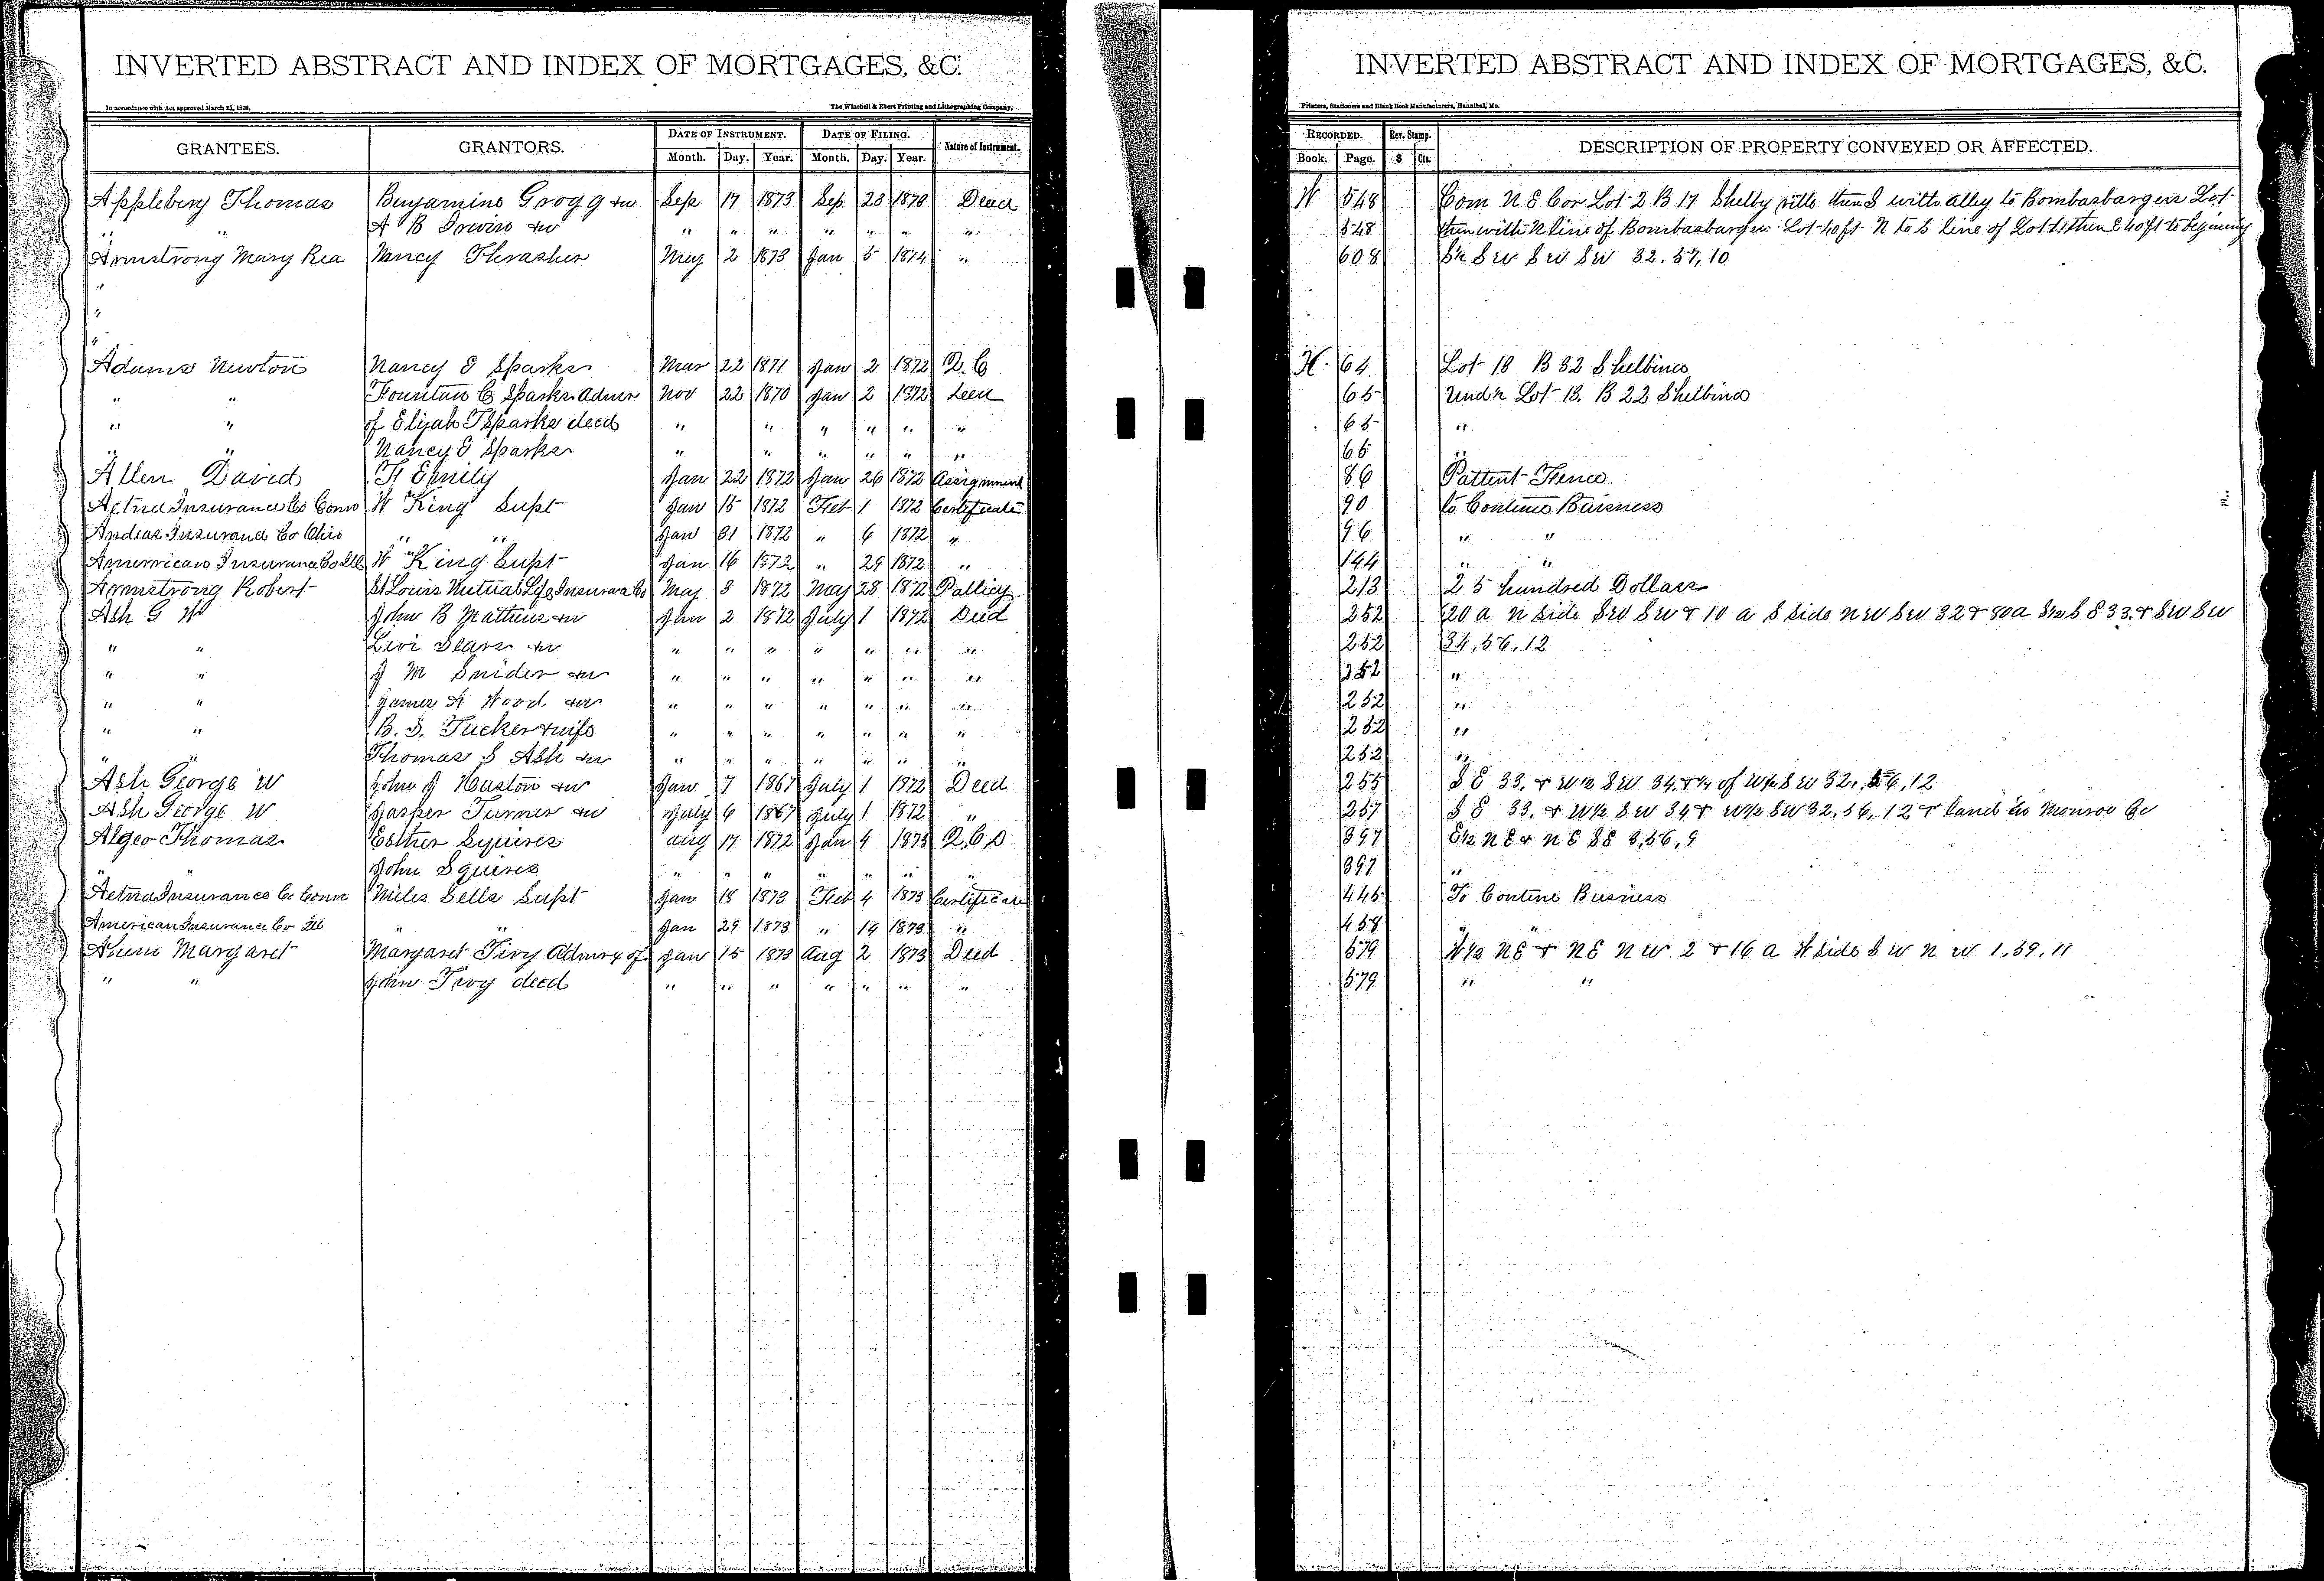 INVERTED ABSTRACT AND INDEX OF MORTGAGES, &C.
In accordance with Act approved March 25, 1870.
The Winchell & Ebert Printing and Lithographing Company,
GRANTEES. GRANTORS. DATE OF INSTRUMENT. DATE OF FILING. Nature of Instrument.
Month. Day. Year. Month. Day. Year.
Appleberg Thomas Benjamine Grogg & w Sep 17 1873 Sep 23 1873 Deed
" " A B Irwin & w " " " " " " "
Armstrong Mary Rea Nancy Thrasher May 2 1873 Jan 5 1874 "
"
"
"
Adams Newton Nancy E Sparks Mar 22 1871 Jan 2 1872 Q. C
" " Fountain C Sparks Admr Nov 22 1870 Jan 2 1872 Deed
" " of Elijah T Sparks decd " " " " " "
" " Nancy E Sparks " " " " " "
Allen David H Emily Jan 22 1872 Jan 26 1872 Assignment
Aetna Insurance Co Conn W King Supt Jan 15 1872 Feb 1 1872 Certificate
Andeas Insurance Co Ohio " " Jan 31 1872 " 6 1872 "
Amerrican Insurance Co Ills W King Supt Jan 16 1872 " 29 1872 "
Armstrong Robert St Louis Mutual Life Insurance Co May 8 1872 May 28 1872 Pollicy
Ash G W John B Matthews & w Jan 2 1872 July 1 1872 Deed
" " Levi Sears & w " " " " " " "
" " J M Snider & w " " " " " " "
" " James A Wood & w " " " " " " "
" " B. S. Tucker & wife " " " " " " "
" " Thomas S Ash & w " " " " " " "
Ash George W John J Huston & w Jan 7 1867 July 1 1872 Deed
Ash George W Jasper Turner & w July 6 1867 July 1 1872 "
Algeo Thomas Esther Squires Aug 17 1872 Jan 4 1873 Q. C D
John Squires " " " " " " "
Aetna Insurance Co Conn Miles Sells Supt Jan 18 1873 Feb 4 1873 Certificate
American Insurance Co Ill " " Jan 29 1873 " 14 1873 "
Margaret Margaret Tivy Admrx of Jan 15 1873 Aug 2 1873 Deed
" " John Tivy decd " " " " " " "
INVERTED ABSTRACT AND INDEX OF MORTGAGES, &C.
Printers, Stationers and Blank Book Manufacturers, Hannibal, Mo.
RECORDED. Rev. Stamp. DESCRIPTION OF PROPERTY CONVEYED OR AFFECTED.
Book. Page. $ Cts.
W 548 Com N E Cor Lot 2 B 17 Shelbyville then S with alley to Bombasbargers Lot
548 then with N line of Bombasbargers Lot 40 ft N to S line of Lot then E 40 ft to begining
608 S W S W 32. 57, 10
64 Lot 18 B 32 Shelbina
65 Und ½ Lot 18. B 22 Shelbina
65 "
65 "
86 Pattent Fence
90 to Contine Buisness
96 " "
144 " "
213 25 hundred Dollars
252 20 a N side S W S W & 10 a S side N W S W 32 & 80 a S ½ S E 33. & S W S W
252 34, 56, 12
252 "
252 "
252 "
252 "
255 S E 33. & W ½ S W 34. & of W ½ S W 32, 56, 12
257 S E 33. & W ½ S W 34 & W ½ S W 32, 56, 12 & land in Monroe Co
397 E ½ N E & N E S E 3, 56, 9
397 "
445 To Contine Business
458 " "
579 W ½ N E & N E N W 2 & 16 a W side S W N W 1. 59. 11
579 " "